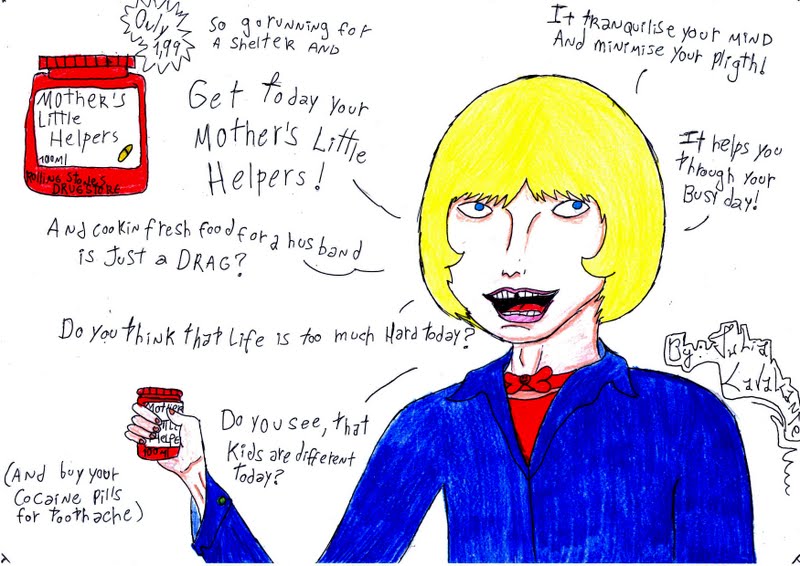 Only
1,99
so go running for
A shelter AND
It tranquilise your MIND
AND minimise your pligth!
Mother's
Little
Helpers
100ml
Rolling Stones
DRUGSTORE
Get today your
Mother's Little
Helpers!
It helps you
through your
Busy day!
And cookin fresh food for a husband
is Just a DRAG?
Do you think that Life is too much Hard today?
By:
Mother
Little
Helpe
100ml
Do you see, that
Kids are different
today?
(And buy your
Cocaine pills
for toothache)